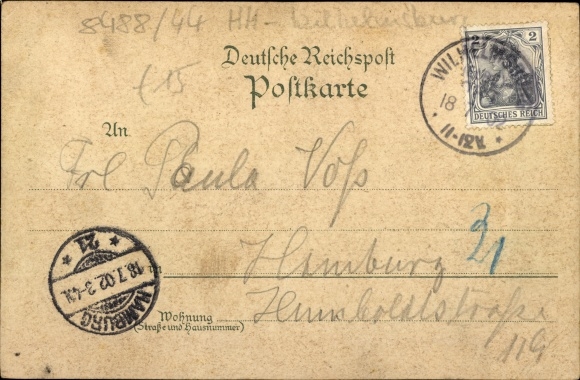 8488/44 HH - Wilhelmsburg
(15
Deutsche Reichspost
Postkarte
2
DEUTSCHES REICH
18
11-12V.
An
Frl Paula Voß
21
18.7.02. 3-4N.
HAMBURG
21
Hamburg
Wohnung
(Straße und Hausnummer)
Humboldtstraße
119